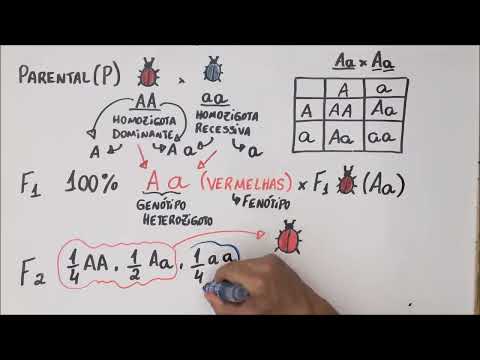 PARENTAL (P) x
AA aa
HOMOZIGOTA DOMINANTE HOMOZIGOTA RECESSIVA
A A a a
F1 100% Aa (VERMELHAS) x F1 (Aa)
GENÓTIPO HETEROZIGOTO FENÓTIPO
F2 1/4 AA . 1/2 Aa . 1/4 aa
Aa x Aa
A a
A AA Aa
a Aa aa